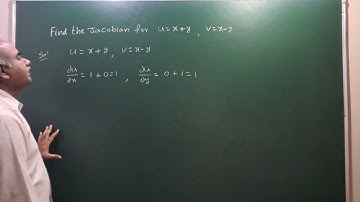 Find the Jacobian for u=x+y, v=x-y
Sol
u=x+y, v=x-y
∂u/∂x = 1+0=1, ∂u/∂y = 0+1=1